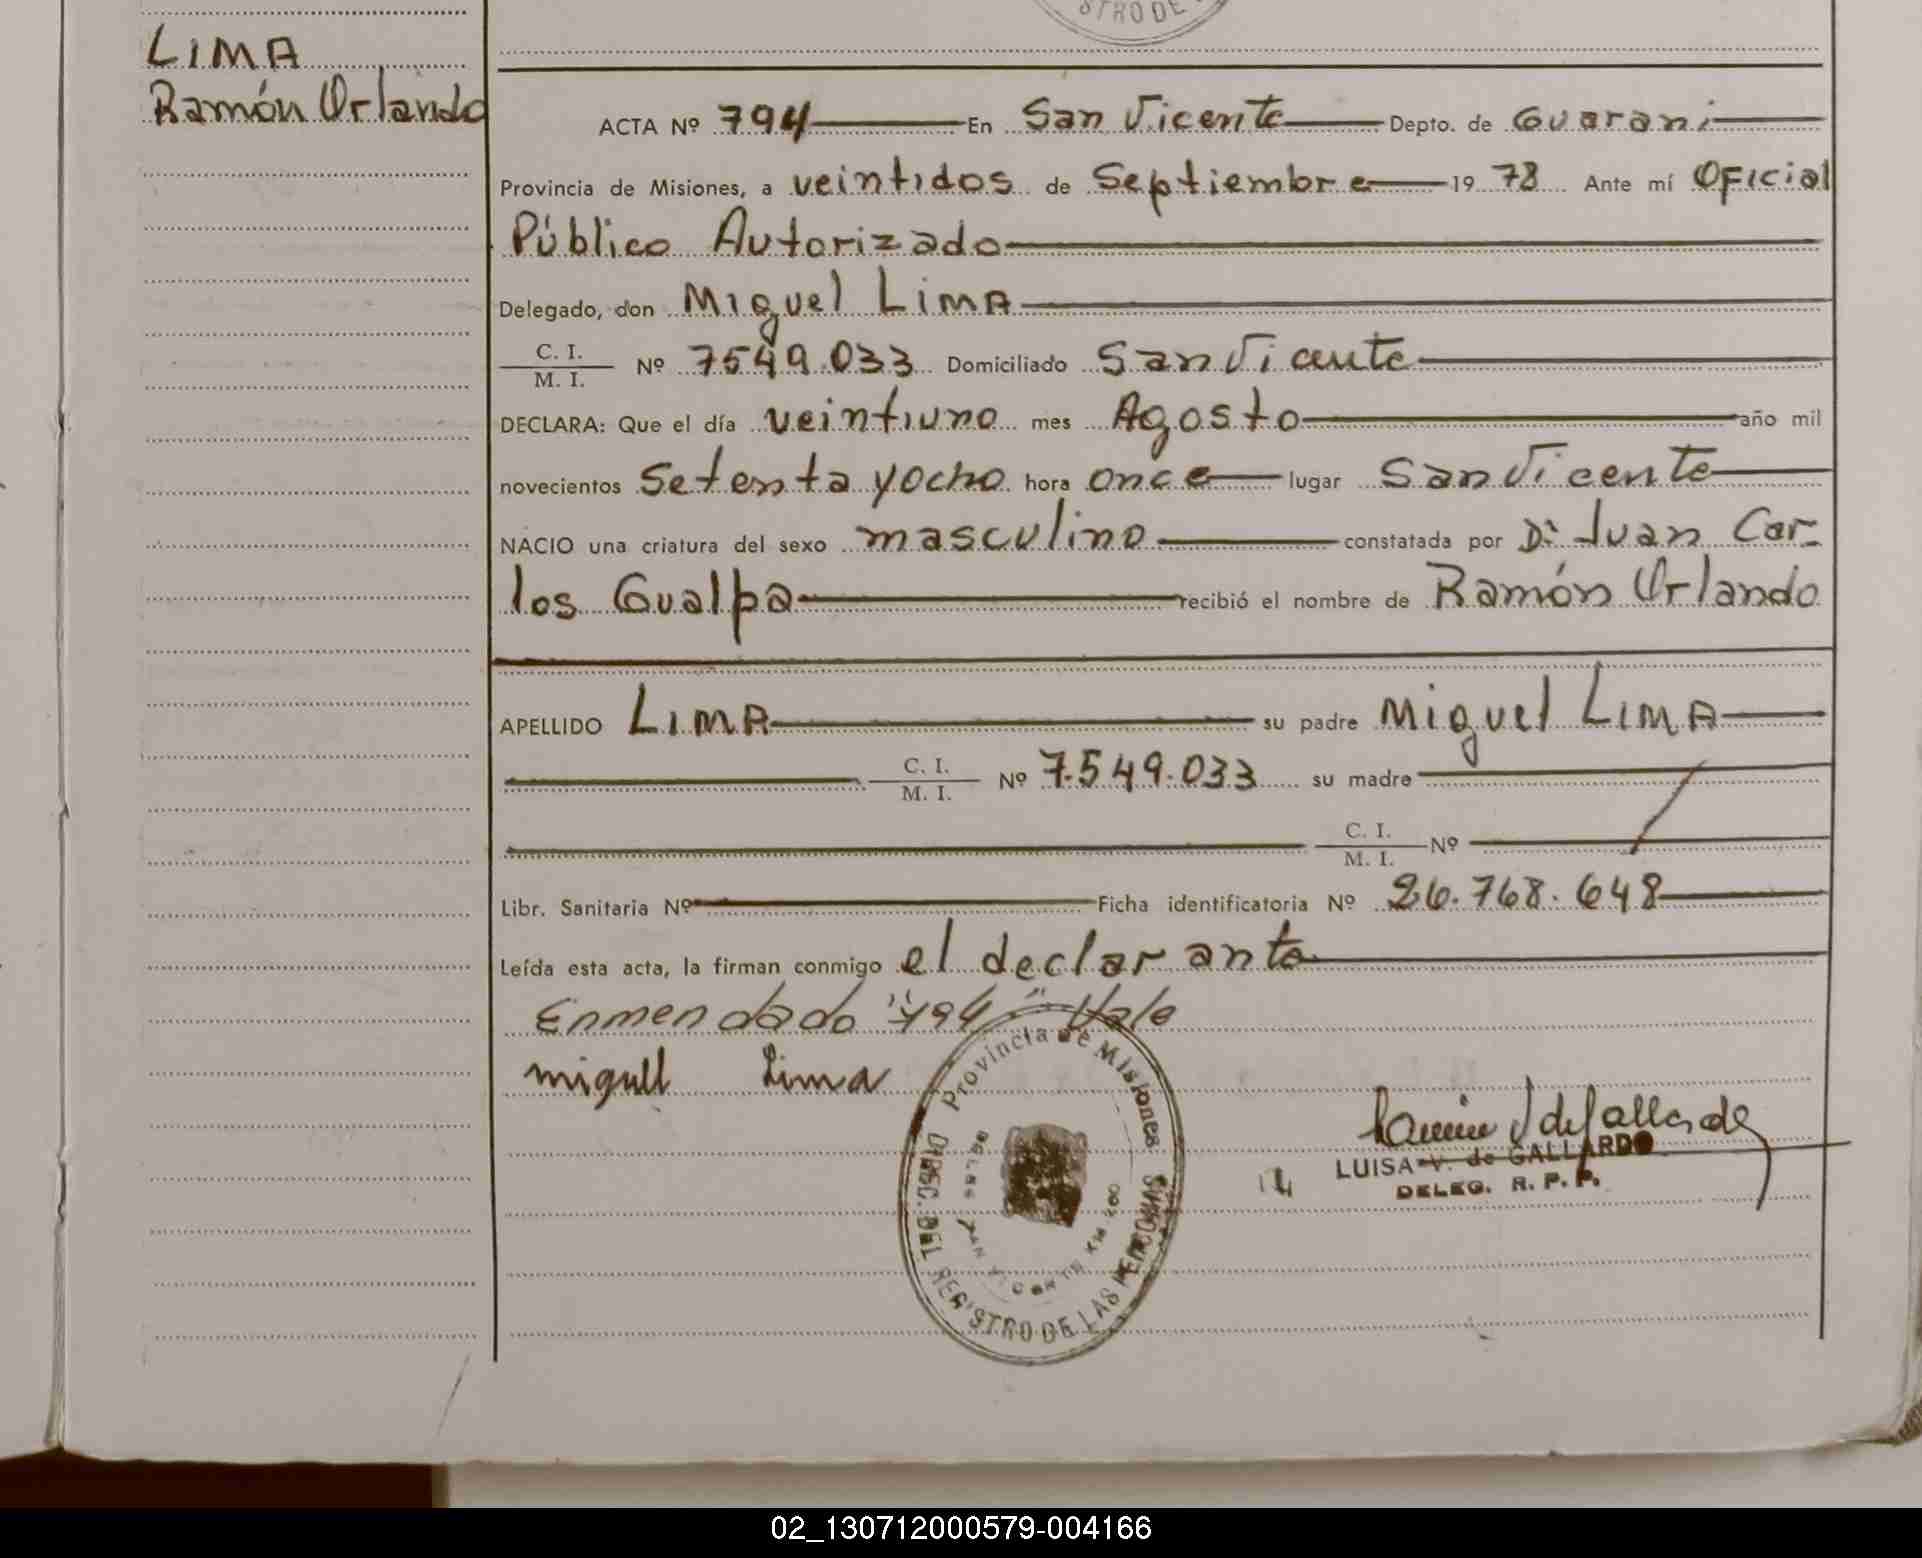 STRO DE
LIMA
Ramón Orlando
ACTA Nº 794 En San Vicente Depto. de Guarani
Provincia de Misiones, a veintidos de Septiembre 19 78 Ante mí Oficial
Público Autorizado
Delegado, don Miguel Lima
C. I.
M. I. Nº 7549.033 Domiciliado San Vicente
DECLARA: Que el día veintiuno mes Agosto año mil
novecientos setenta y ocho hora once lugar San Vicente
NACIO una criatura del sexo masculino constatada por Dr Juan Car-
los Gualpa recibió el nombre de Ramón Orlando
APELLIDO LIMA su padre Miguel Lima
C. I.
M. I. Nº 7.549.033 su madre
C. I.
M. I. Nº
Libr. Sanitaria Nº Ficha identificatoria Nº 26.768.648
Leída esta acta, la firman conmigo el declarante
Enmendado "794" Vale
miguel Lima
Provincia de Misiones
DIREC. DEL REGISTRO DE LAS PERSONAS
LUISA V. de GALLARDO
DELEG. R. P. P.
02_130712000579-004166